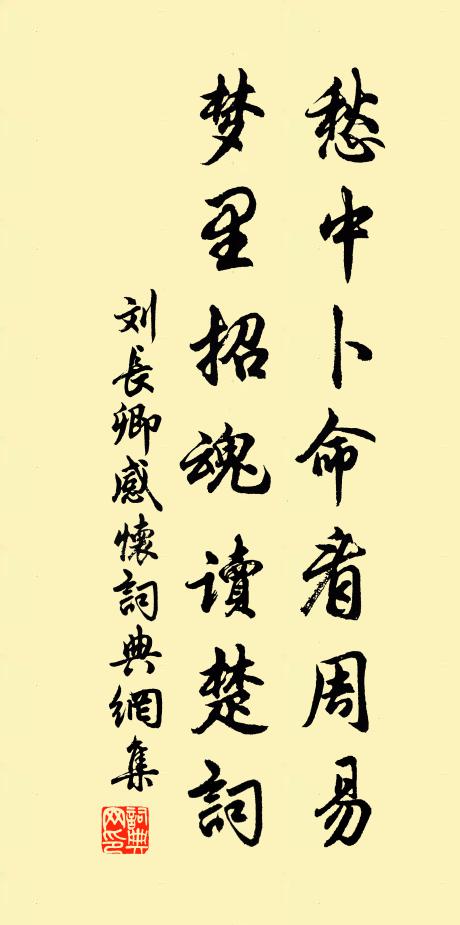 愁中卜命看周易
梦里招魂讀楚詞
刘長卿感懷詞典網集
詞典
网印